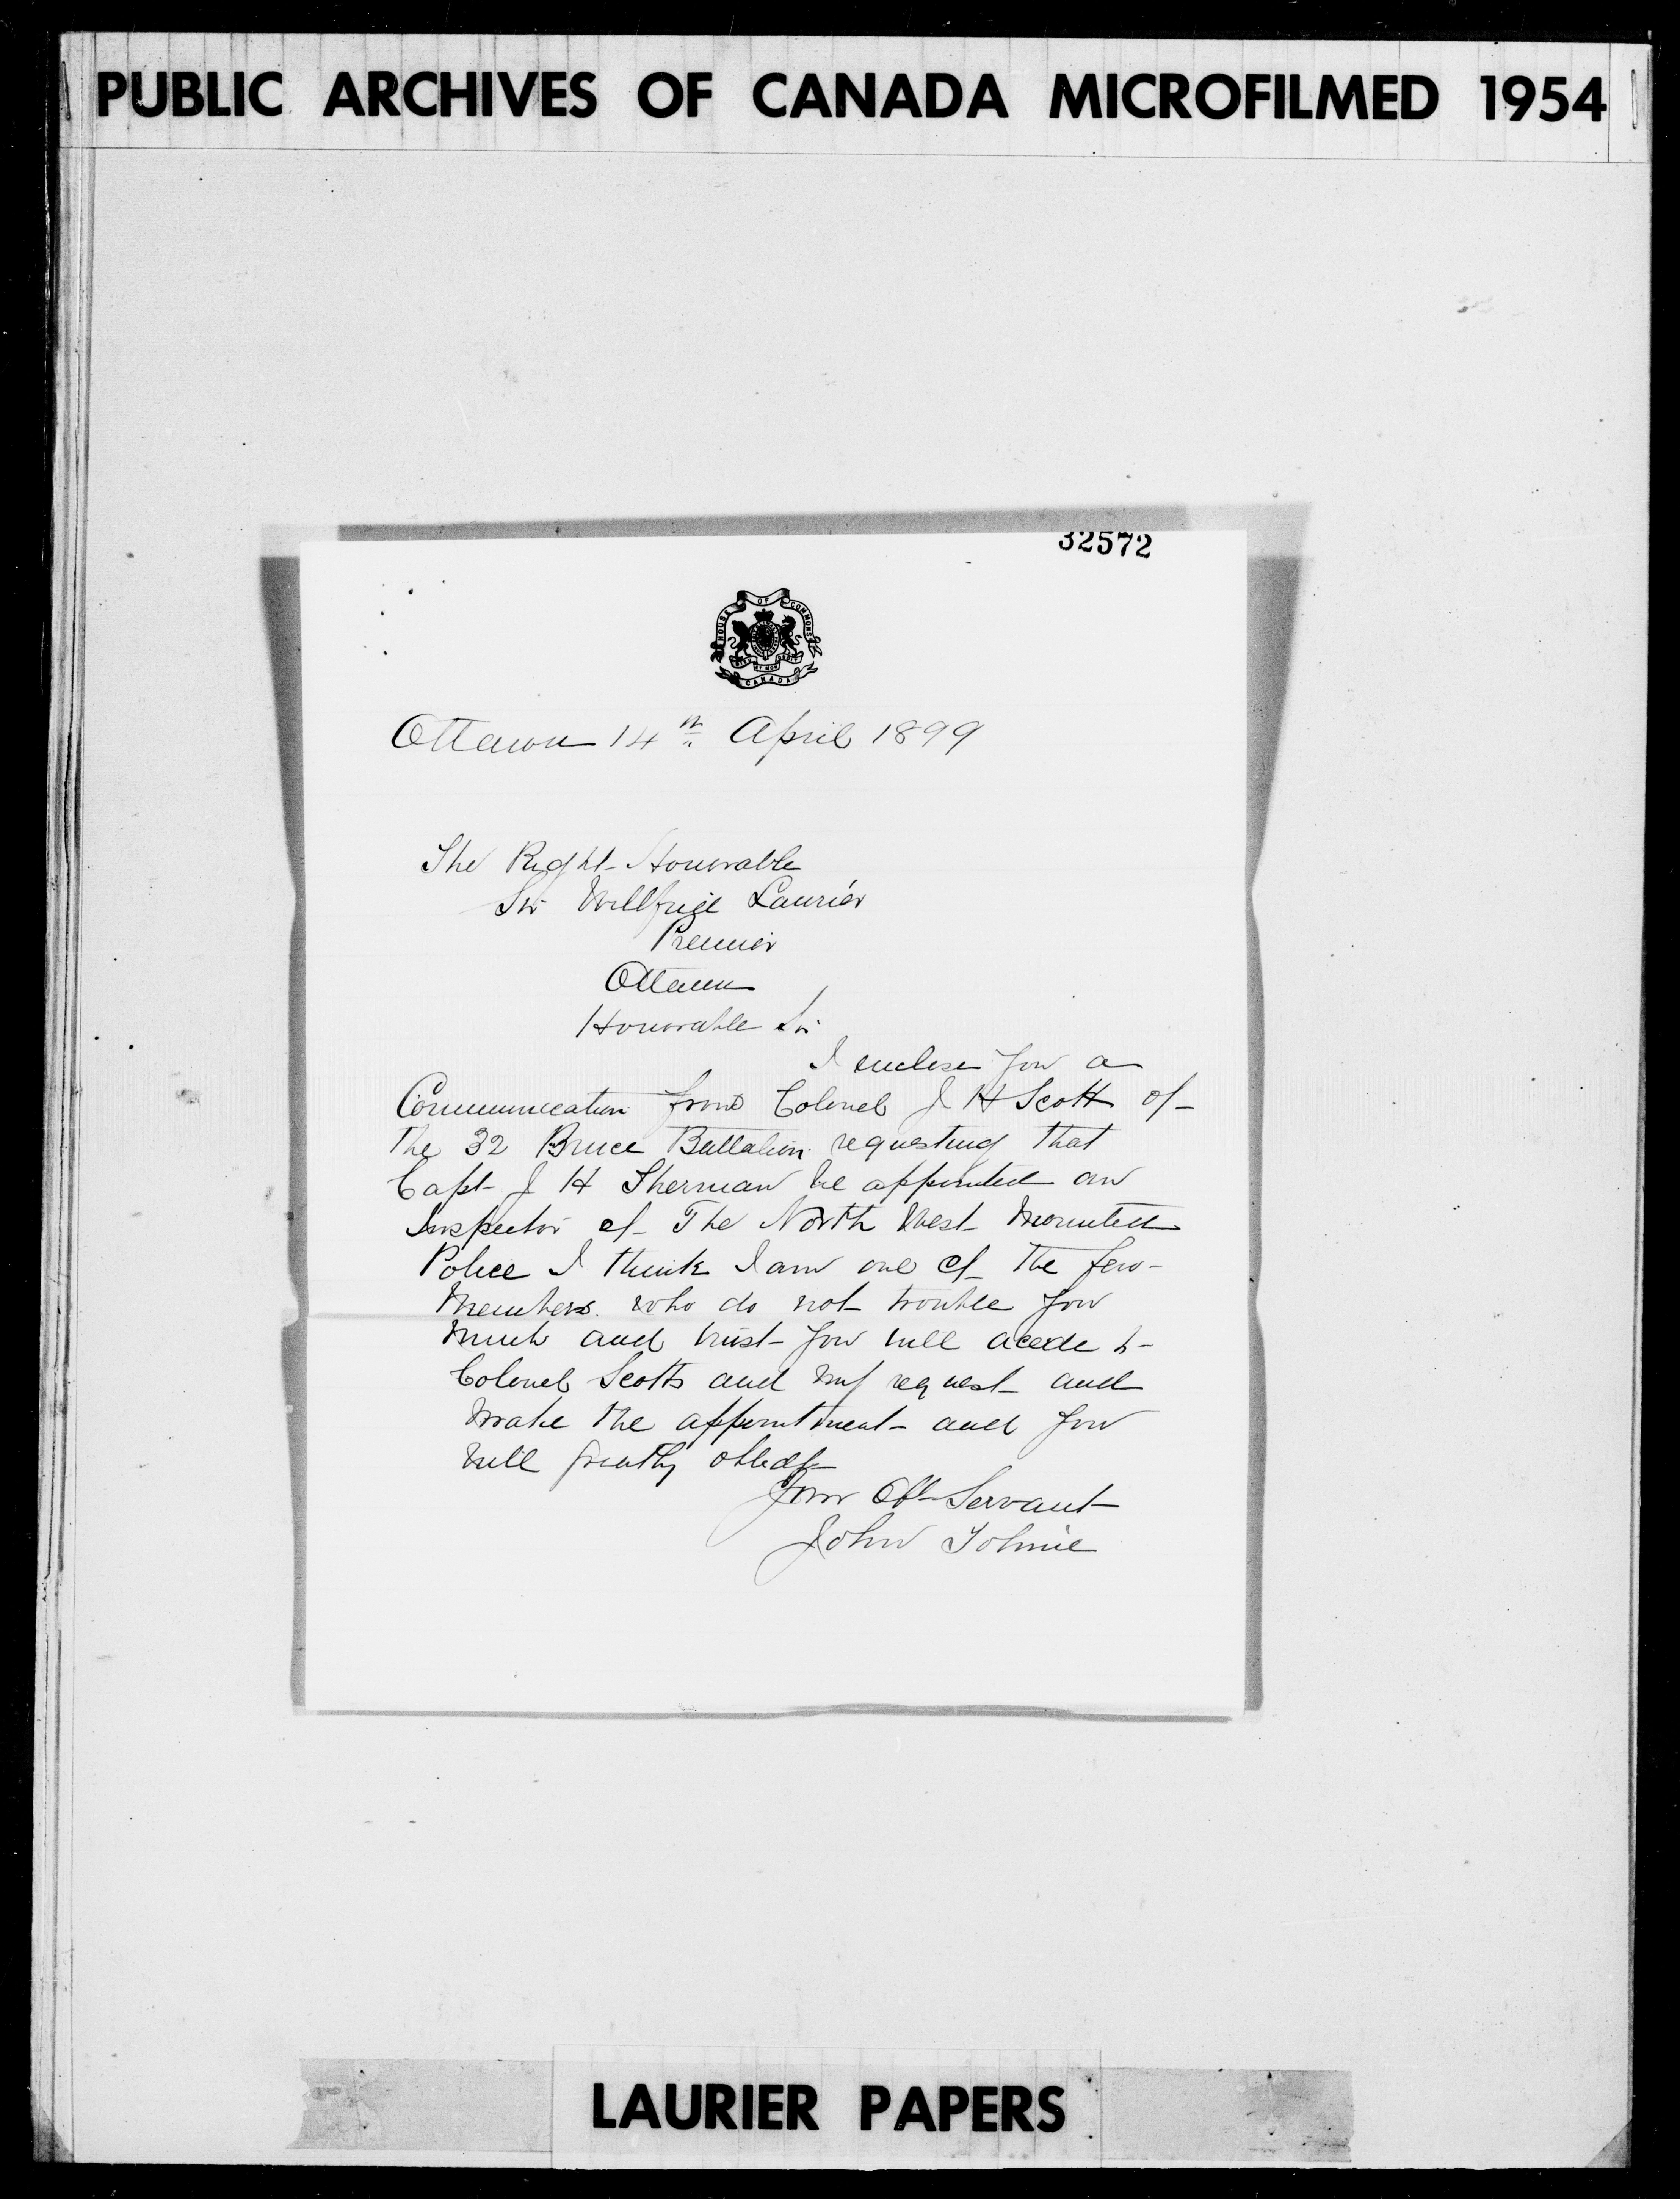 PUBLIC ARCHIVES OF CANADA MICROFILMED 1954
32572
HOUSE OF COMMONS
CANADA
Ottawa 14th April 1899
The Right Honorable
Sir Willfrid Laurier
Premier
Ottawa
Honorable Sir
I enclose you a
Communication from Colonel J H Scott of
the 32 Bruce Battalion requesting that
Capt J H Sherman be appointed an
Inspector of The North West Mounted
Police I think I am one of the few
Members who do not trouble you
much and trust you will acede to
Colonel Scotts and my request and
make the appointment and you
will greatly obledge
Your Obt Servant
John Tolmie
LAURIER PAPERS